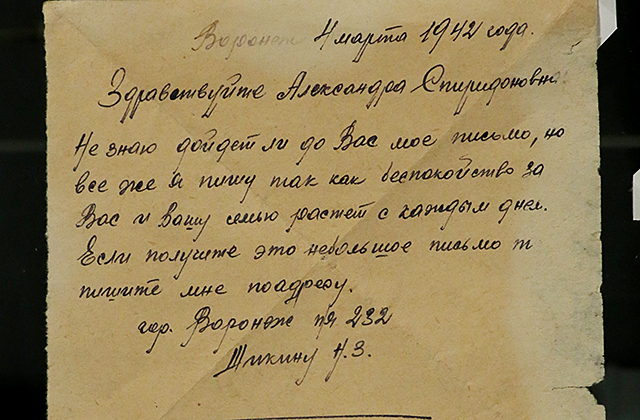 Воронеж 4 марта 1942 года.
Здравствуйте Александра Спиридоновна
Не знаю дойдет ли до Вас мое письмо, но
все же я пишу так как беспокойство за
Вас и Вашу семью растет с каждым днем.
Если получите это небольшое письмо т
пишите мне поадресу.
гор. Воронеж пя 232
Шикину Н.З.